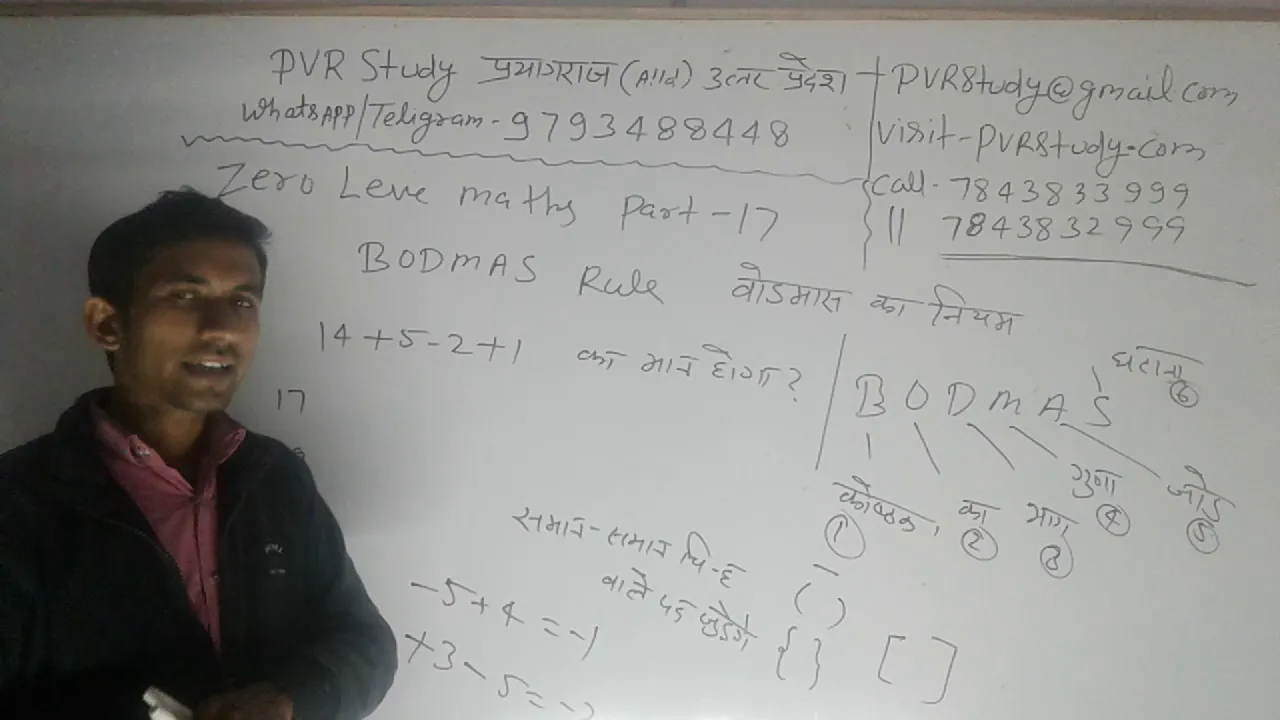 PVR Study प्रयागराज (Alld) उत्तर प्रदेश
WhatsAPP/Teligram - 9793488448
PVRStudy@gmail.com
visit-PVRStudy.com
call - 7843833999
" 7843832999
Zero Leve maths Part - 17
BODMAS Rule वोडमास का नियम
14+5-2+1 का मान होगा?
17
BODMAS
घटाना 6
कोष्ठक, 1
का 2
भाग 3
गुणा 4
जोड 5
समान-समान चिन्ह
वाले पद जुडेगे
-5+4=-1
+3-5=-
( ) { } [ ]